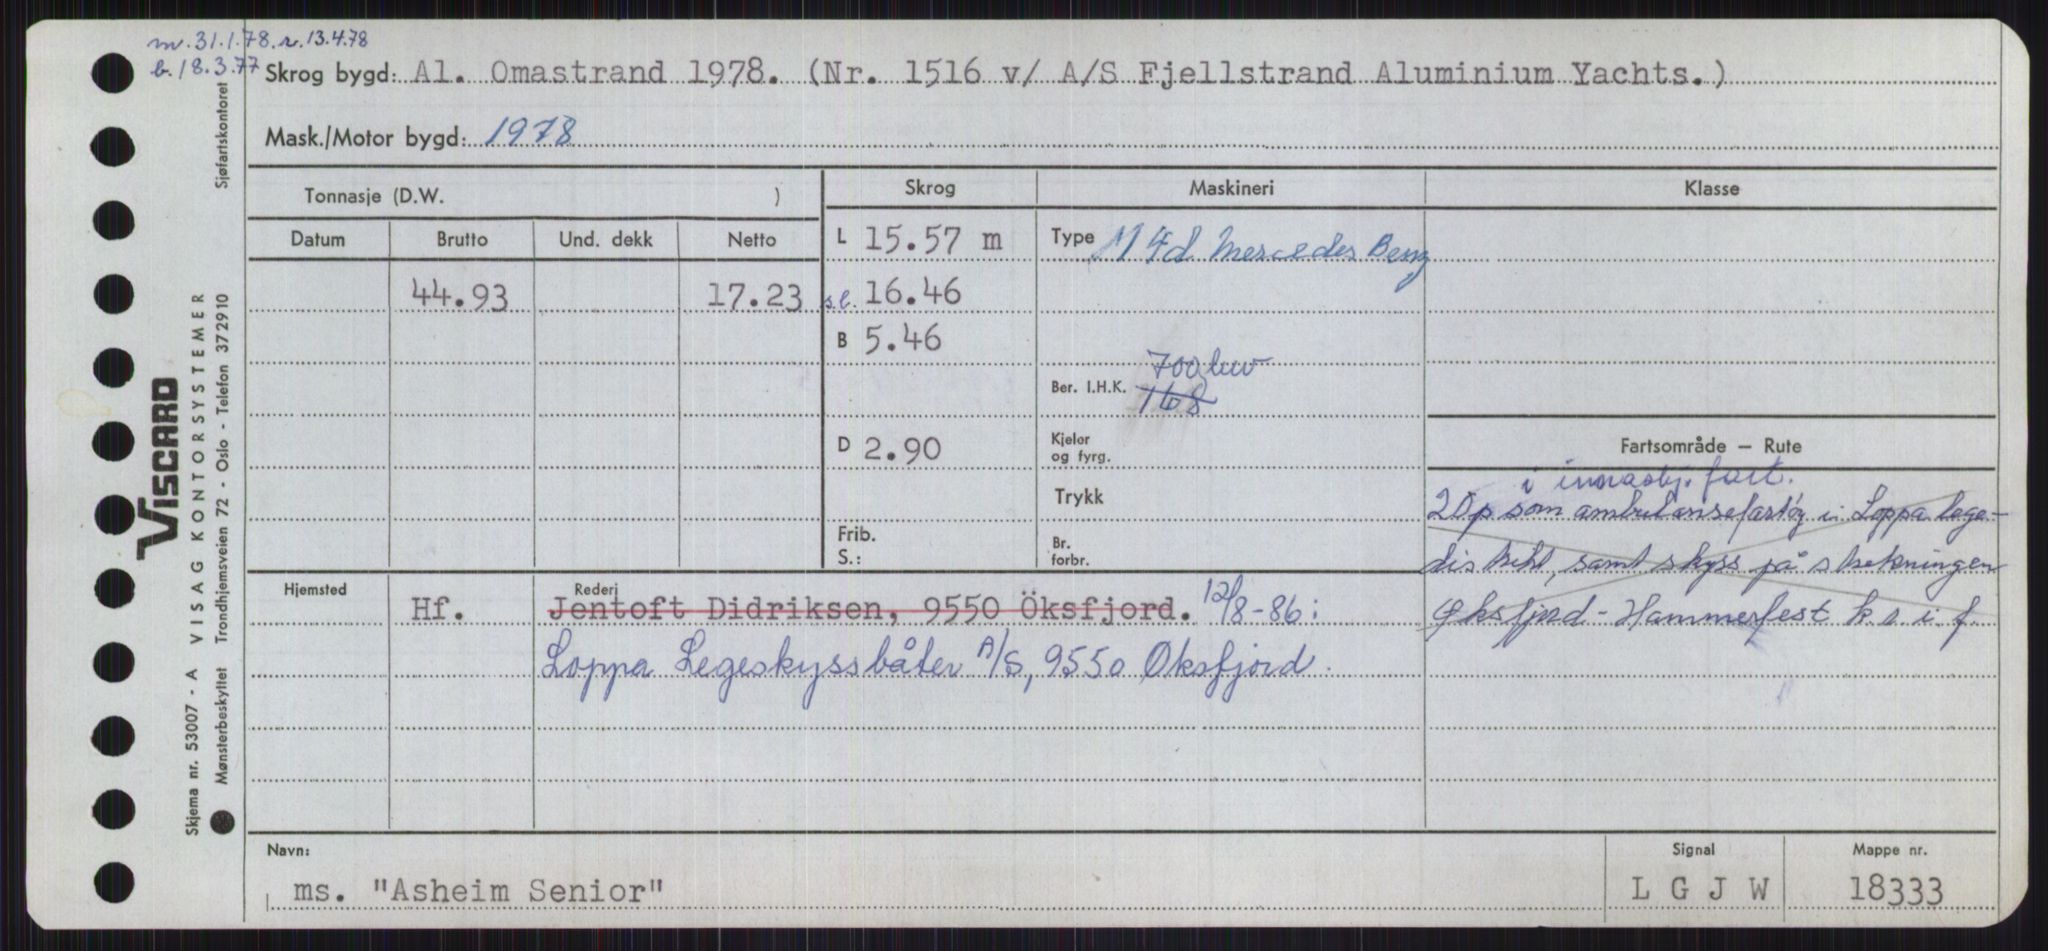 m. 31.1.78. r. 13.4.78
b. 18.3.77
Skrog bygd: Al. Omastrand 1978. (Nr. 1516 v/ A/S Fjellstrand Aluminium Yachts.)
Mask./Motor bygd: 1978
Tonnasje (D.W. )
Skrog
Maskineri
Klasse
Datum Brutto Und. dekk Netto
L 15.57 m
Type M 4d Mercedes Benz
44.93 17.23
s.l. 16.46
B 5.46
700 kw
Ber. I.H.K. 168
D 2.90
Kjeler
og fyrg.
Trykk
Frib.
S.:
Br.
forbr.
Fartsområde – Rute
i innaskj. fart.
20 p som ambulansefartøy i Loppa lege-
distrikt, samt skyss på strekningen
Øksfjord - Hammerfest k s. i. f.
Hjemsted
Rederi
Hf. Jentoft Didriksen, 9550 Öksfjord. 12/8-86:
Loppa Legeskyssbåter A/S, 9550 Øksfjord.
Navn:
ms. "Asheim Senior"
Signal
L G J W
Mappe nr.
18333
Skjema nr. 53007 - A VISAG KONTORSYSTEMER
Mønsterbeskyttet Trondhjemsveien 72 - Oslo - Telefon 372910 Sjøfartskontoret
VISCARD